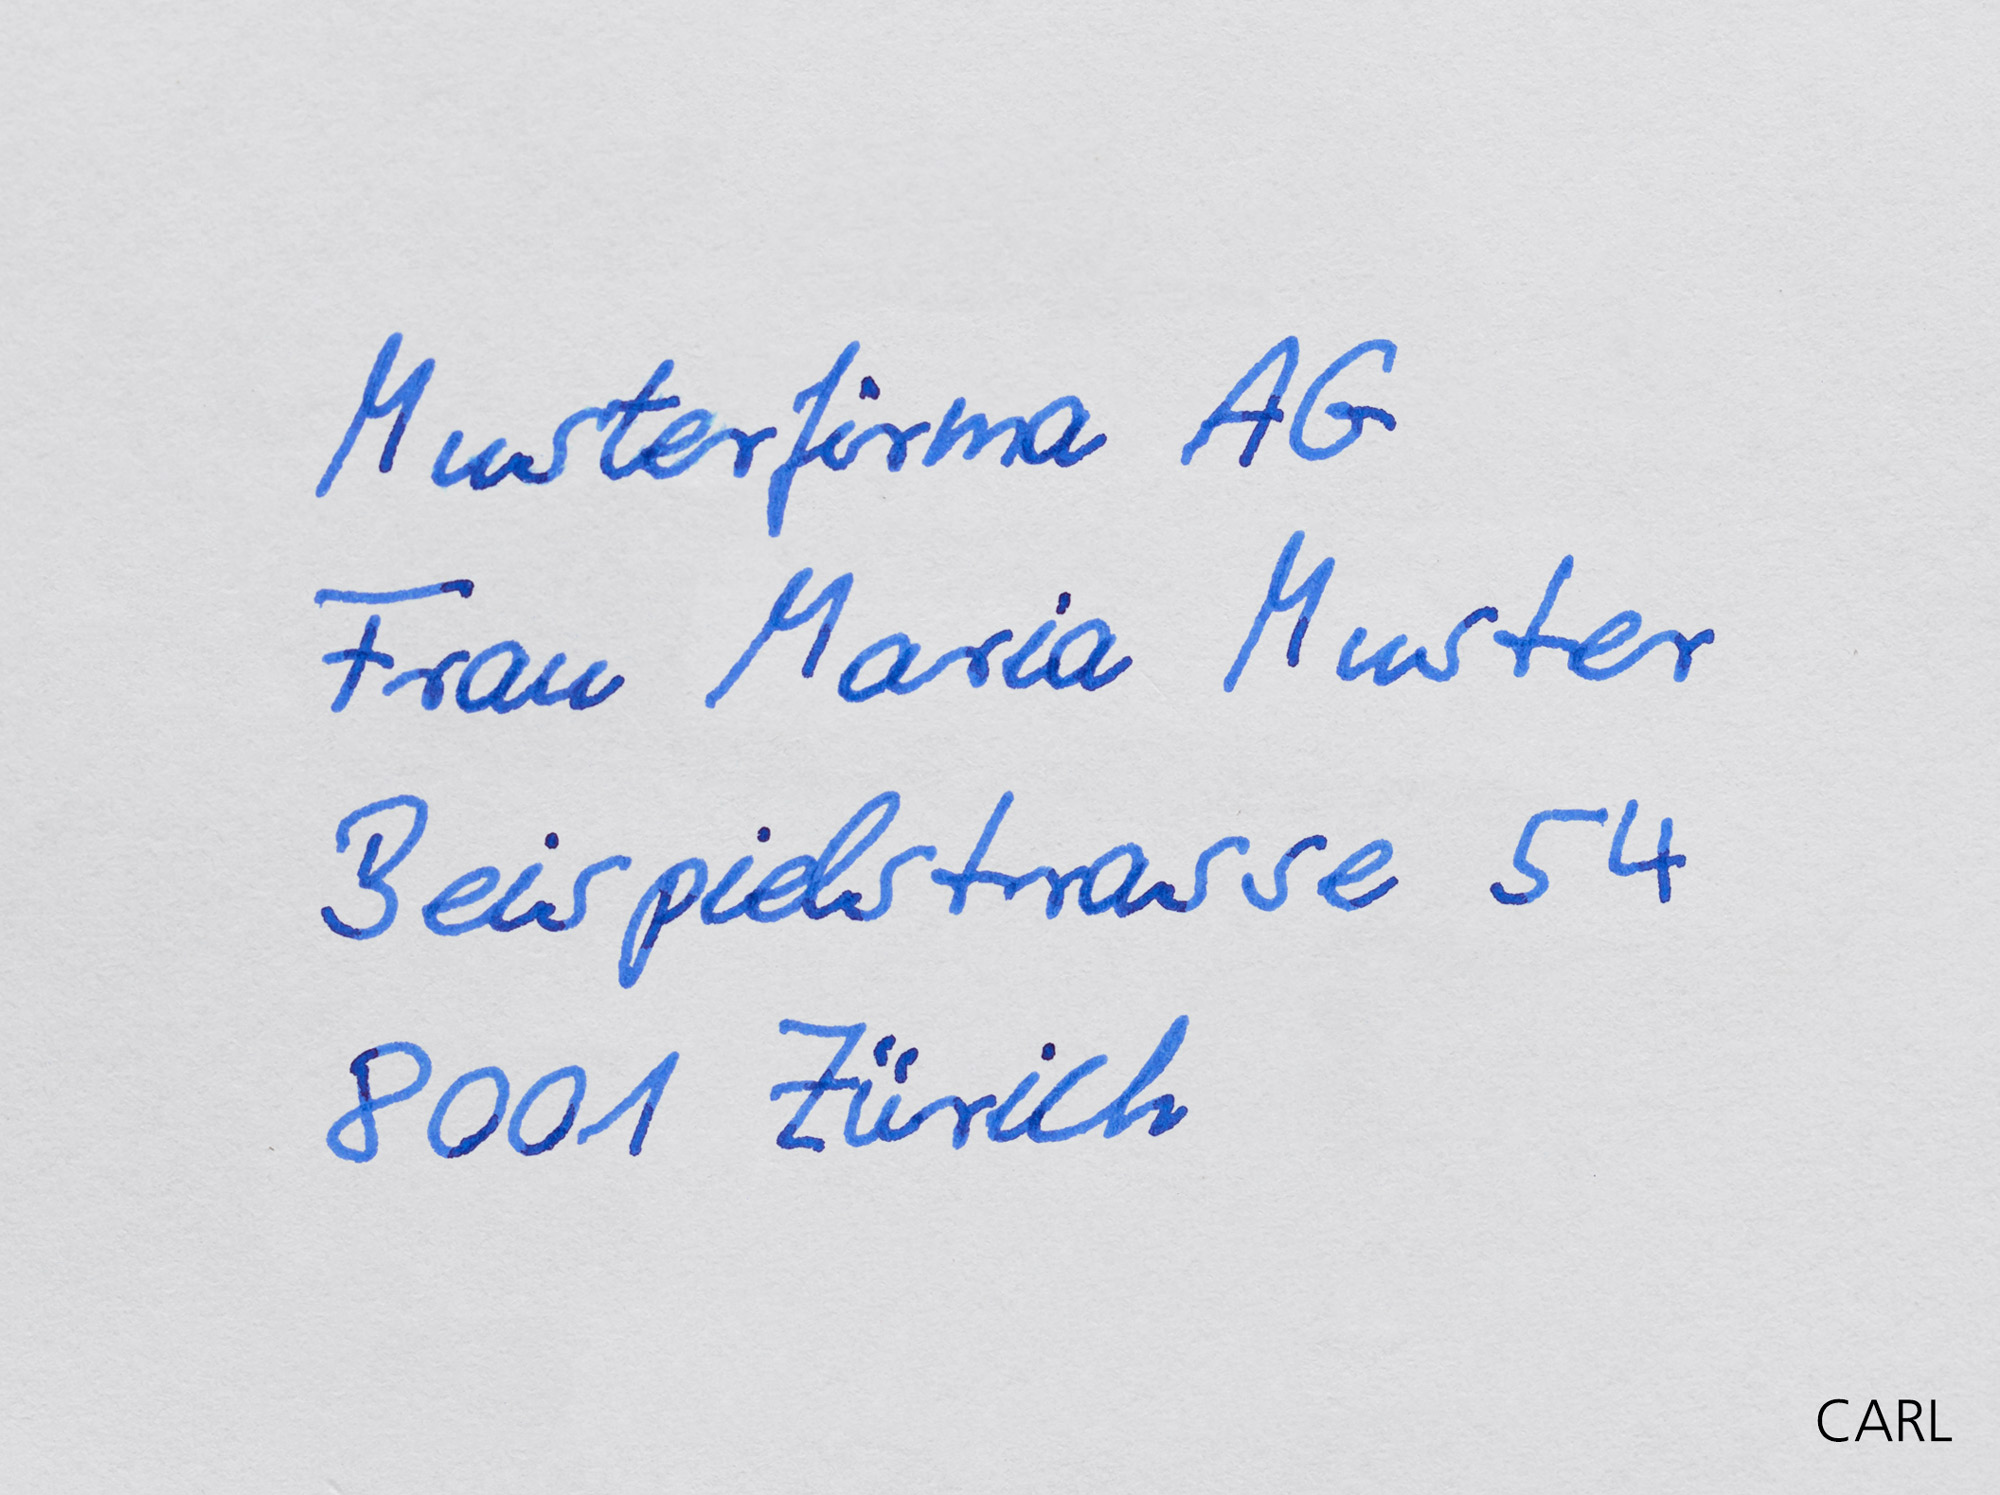 Musterfirma AG
Frau Maria Muster
Beispielstrasse 54
8001 Zürich
CARL